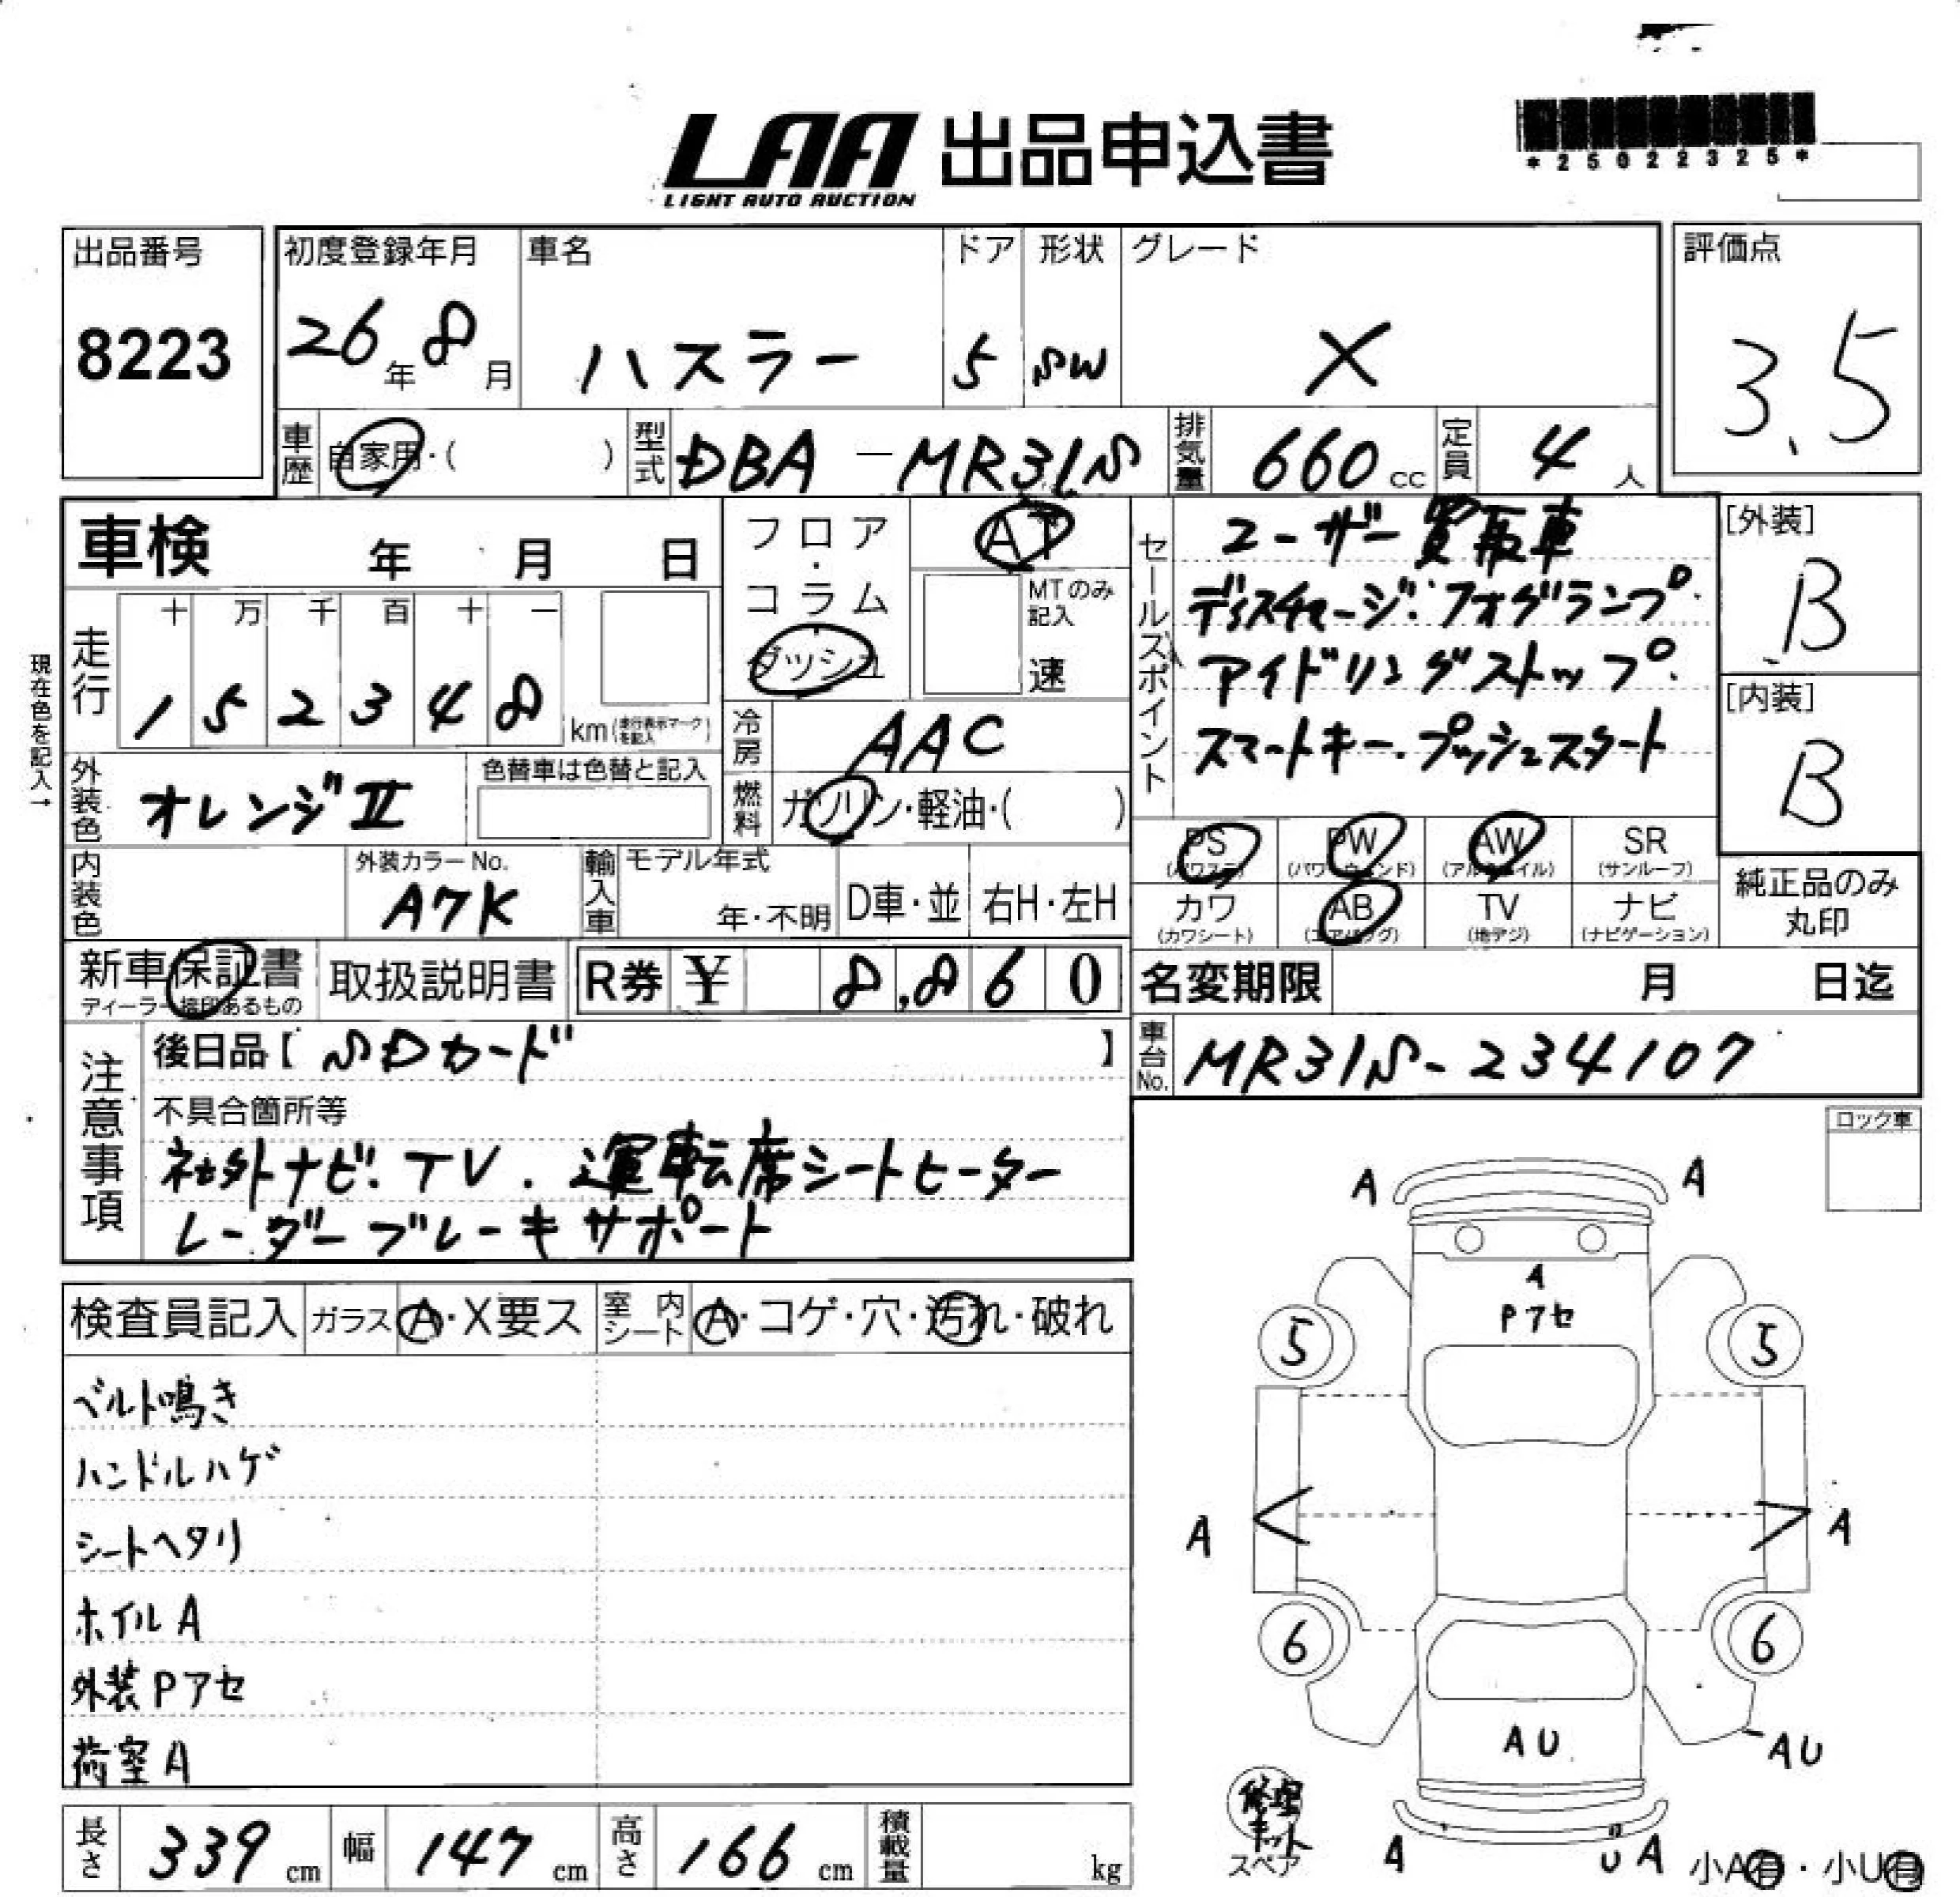 LAA 出品申込書
LIGHT AUTO AUCTION
*25022325*
出品番号 初度登録年月 車名 ドア 形状 グレード 評価点
8223 26年8月 ハスラー 5 SW X 3.5
車歴 自家用・( ) 型式 DBA-MR31S 排気量 660cc 定員 4人
車検 年 月 日
フロア・コラム ダッシュ AT MTのみ記入 速
現在色を記入→
走行 十 万 千 百 十 一
1 5 2 3 4 8 km(走行表示マークを記入)
冷房 AAC
外装色 オレンジⅡ 色替車は色替と記入
燃料 ガソリン・軽油・( )
内装色 外装カラーNo. A7K
輸入車 モデル年式 年・不明 D車・並 右H・左H
セールスポイント
ユーザー買取車
ディスチャージ.フォグランプ.
アイドリングストップ.
スマートキー.プッシュスタート
[外装] B
[内装] B
PS(パワステ) PW(パワーウィンド) AW(アルミホイル) SR(サンルーフ)
カワ(カワシート) AB(エアバッグ) TV(地デジ) ナビ(ナビゲーション)
純正品のみ丸印
新車保証書 ディーラー捺印あるもの 取扱説明書 R券 ¥ 8,860
名変期限 月 日迄
車台No. MR31S-234107
注意事項
後日品【SDカード】
不具合箇所等
社外ナビ.TV.運転席シートヒーター
レーダーブレーキサポート
ロック車
検査員記入 ガラス A・X要ス 室内シート A・コゲ・穴・汚れ・破れ
ベルト鳴き
ハンドルハゲ
シートヘタリ
ホイルA
外装Pアセ
荷室A
A A
A
Pアセ
5 5
A A
6 6
AU AU
修理キット
スペア
A U A
小A有・小U有
長さ 339cm 幅 147cm 高さ 166cm 積載量 kg